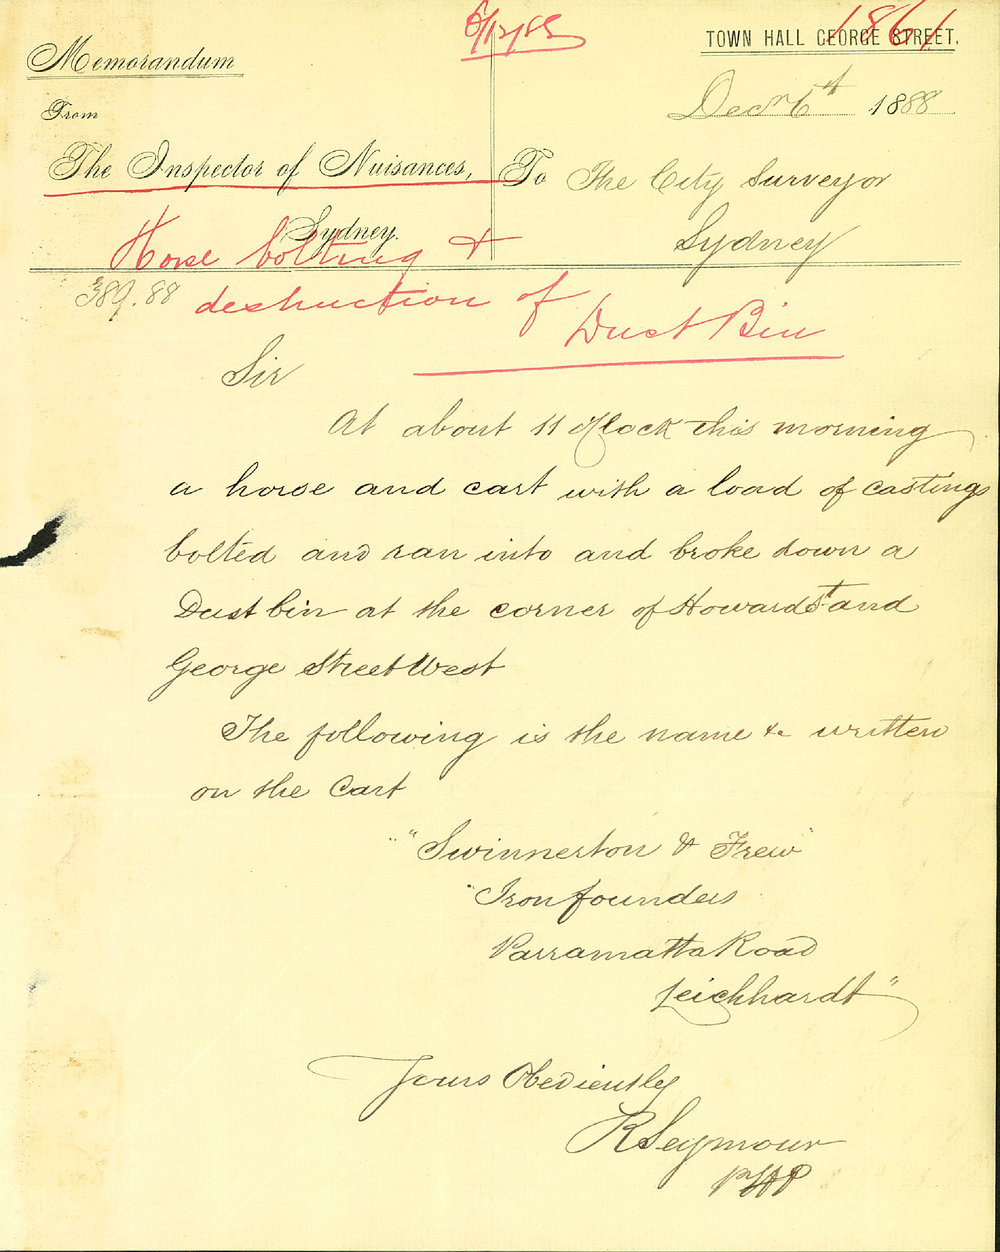 6/12/88
1861
Memorandum
TOWN HALL GEORGE STREET.
From
Decr 6th 1888
The Inspector of Nuisances,
To The City Surveyor
Sydney.
Sydney
Horse bolting &
389.88
destruction of
Dust Bin
Sir
At about 11 o'clock this morning
a horse and cart with a load of castings
bolted and ran into and broke down a
Dust bin at the corner of Howard St and
George Street West
The following is the name &c written
on the Cart
"Swinnerton & Frew"
"Iron founders
Parramatta Road
Leichhardt"
Yours Obediently
R Seymour